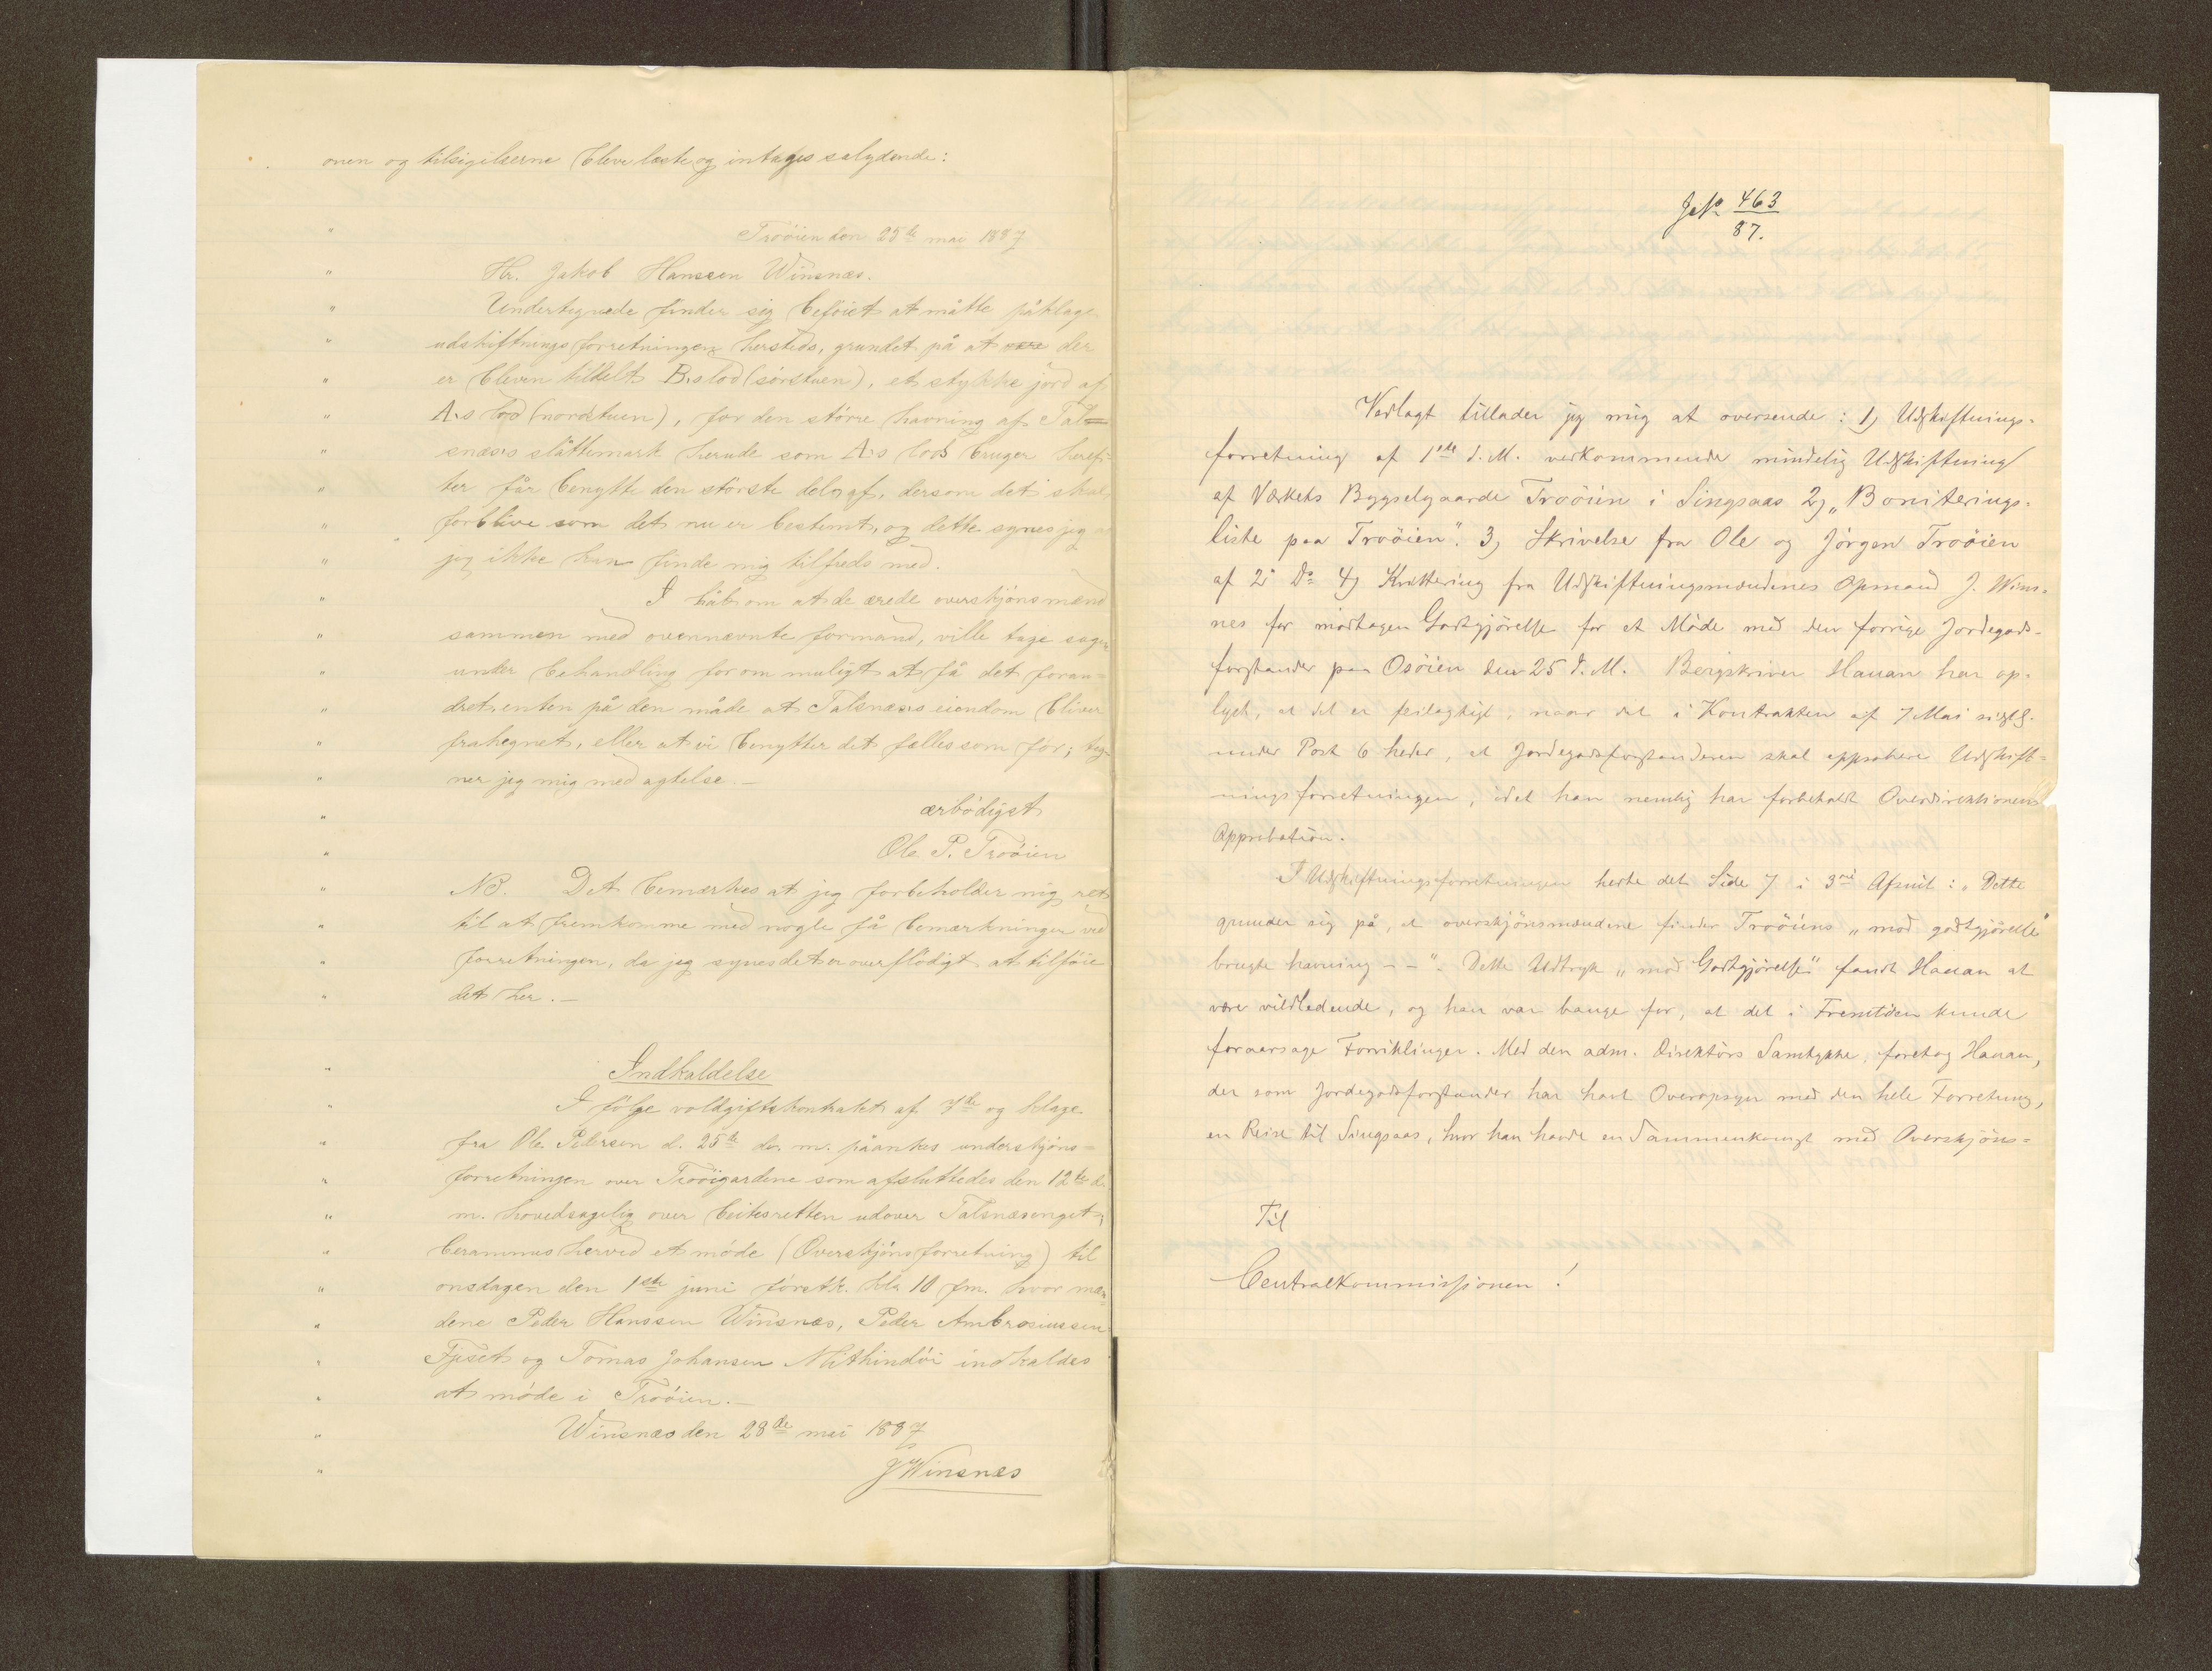 onen og tilsigilserne bleve læste og intages salydende:
" Troöien den 25te mai 1887
" Hr. Jakob Hanssen Winsnæs.
" Undertegnede finder sig beföiet at måtte påklage
" udskiftningsforretningen hersteds, grundet på at der
" er bleven tildelt B.s lod (sörstuen), et stykke jord af
" A.s lod (nordstuen), for den större havning af Tal=
" snæs's slåttemark herude som A:s lod bruger heref-
" ter får benytte den störste del af, dersom det skal
" forblive som det nu er bestemt, og dette synes jeg
" jeg ikke kan finde mig tilfreds med.
" I håb om at de ærede overskjönsmænd
" sammen med ovennævnte formand, ville tage sagen
" under behandling for om muligt at få det foran=
" dret, enten på den måde at Talsnæs's eiendom bliver
" frahegnet, eller at vi benytter det fælles som för; teg-
" ner jeg mig med agtelse.—
" ærbödigst
" Ole P. Troöien
" NB. Det bemærkes at jeg forbeholder mig ret
" til at fremkomme med nogle få bemærkninger ved
" forretningen, da jeg synes det er overflödigt at tilföie
" det her.—
" Indkaldelse
" I fölge voldgiftskontrakt af 7de og klage
" fra Ole Pedersen d. 25te ds. m. påankes underskjöns=
" forretningen over Troöigardene som afsluttedes den 12te d.
" m. hovedsagelig over beitesretten udover Talsnæsenget,
" berammes herved et möde (Overskjönsforretning) til
" onsdagen den 1ste juni förstk. kl. 10 fm. hvor mæn=
" dene Peder Hanssen Winsnes, Peder Ambrosiussen
" Fjeset og Tomas Johansen indkaldes
" at möde i Troöien.—
" Winsnæs den 28de mai 1887
" J Winsnes
JNo 463
87.
Vedlagt tillader jeg mig at oversende: 1) Udskiftnings-
forretning af 1ste d. M. vedkommende mindelig Udskiftning
af Værkets Bygselgaarde Troöien i Singsaas 2) „Boniterings-
liste paa Troöien". 3) Skrivelse fra Ole og Jörgen Troöien
af 2. Do 4) Kvittering fra Udskiftningsmændenes Opmand J. Wins-
nes for modtagen Godtgjörelse for et Möde med den forrige Jordegods-
forstander paa Osöien den 25 d. M. Bergskriver Hauan har op-
lyst, at det er feilagtigt, naar det i Kontrakten af 7 Mai sidstl.
under Post 6 heder, at Jordegodsforstanderen skal approbere Udskift-
ningsforretningen, idet han nemlig har forbeholdt Overdirektionens
Approbation.
I Udskiftningsforretningen heder det Side 7 i 3die Afsnit: „Dette
grunder sig på, at overskjönsmændene finder Troöiens „mod godtgjörelse"
brugte havning — —". Dette Udtryk „mod Godtgjörelse" fandt Hauan at
være vildledende, og han var bange for, at det i Fremtiden kunde
foraarsage Forviklinger. Med den adm. Direktörs Samtykke, foretog Hauan,
der som Jordegodsforstander har havt Overopsyn med den hele Forretning,
en Reise til Singsaas, hvor han havde en Sammenkomst med Overskjöns=
Til
Centralkommissionen!